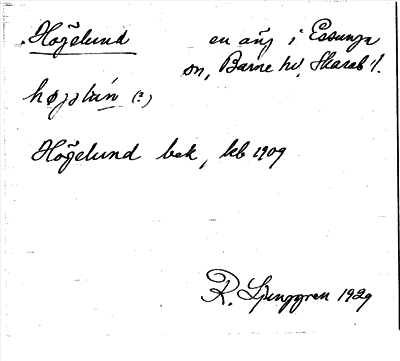 Högelund en äng i Essunga
sn, Barne hd, Skarab. l.
høgalun (?)
Högelund bek, kb 1909
R. Ljunggren 1929